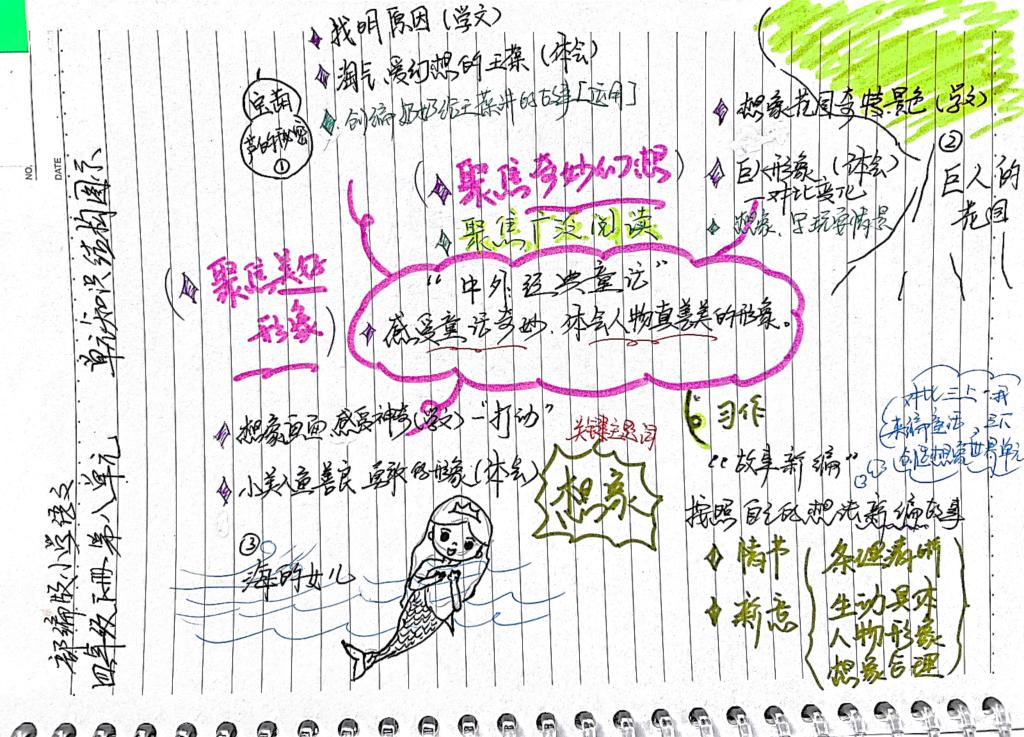 NO.
DATE
部编版小学语文
四年级下册·第八单元 单元知识结构图示
找明原因(学文)
淘气、爱幻想的王葆(体会)
创编奶奶给王葆讲的故事[运用]
宝葫
芦的秘密
①
(聚焦奇妙幻想)
聚焦广泛阅读
(聚焦美好
形象)
“中外经典童话”
感受童话奇妙,体会人物真善美的形象。
想象花园奇特景色(学文)
巨人形象(体会)
—对比变化
想象
②
巨人的
花园
想象画面感受神奇(学文)—“打动”
小美人鱼善良 勇敢的形象(体会)
③
海的女儿
关键主题词
想象
习作
“故事新编”
按照自己的想法新编故事
情节
新意
条理清晰
生动具体
人物形象
想象合理
对比三上·我
来编童话 三下
创造想象世界单元